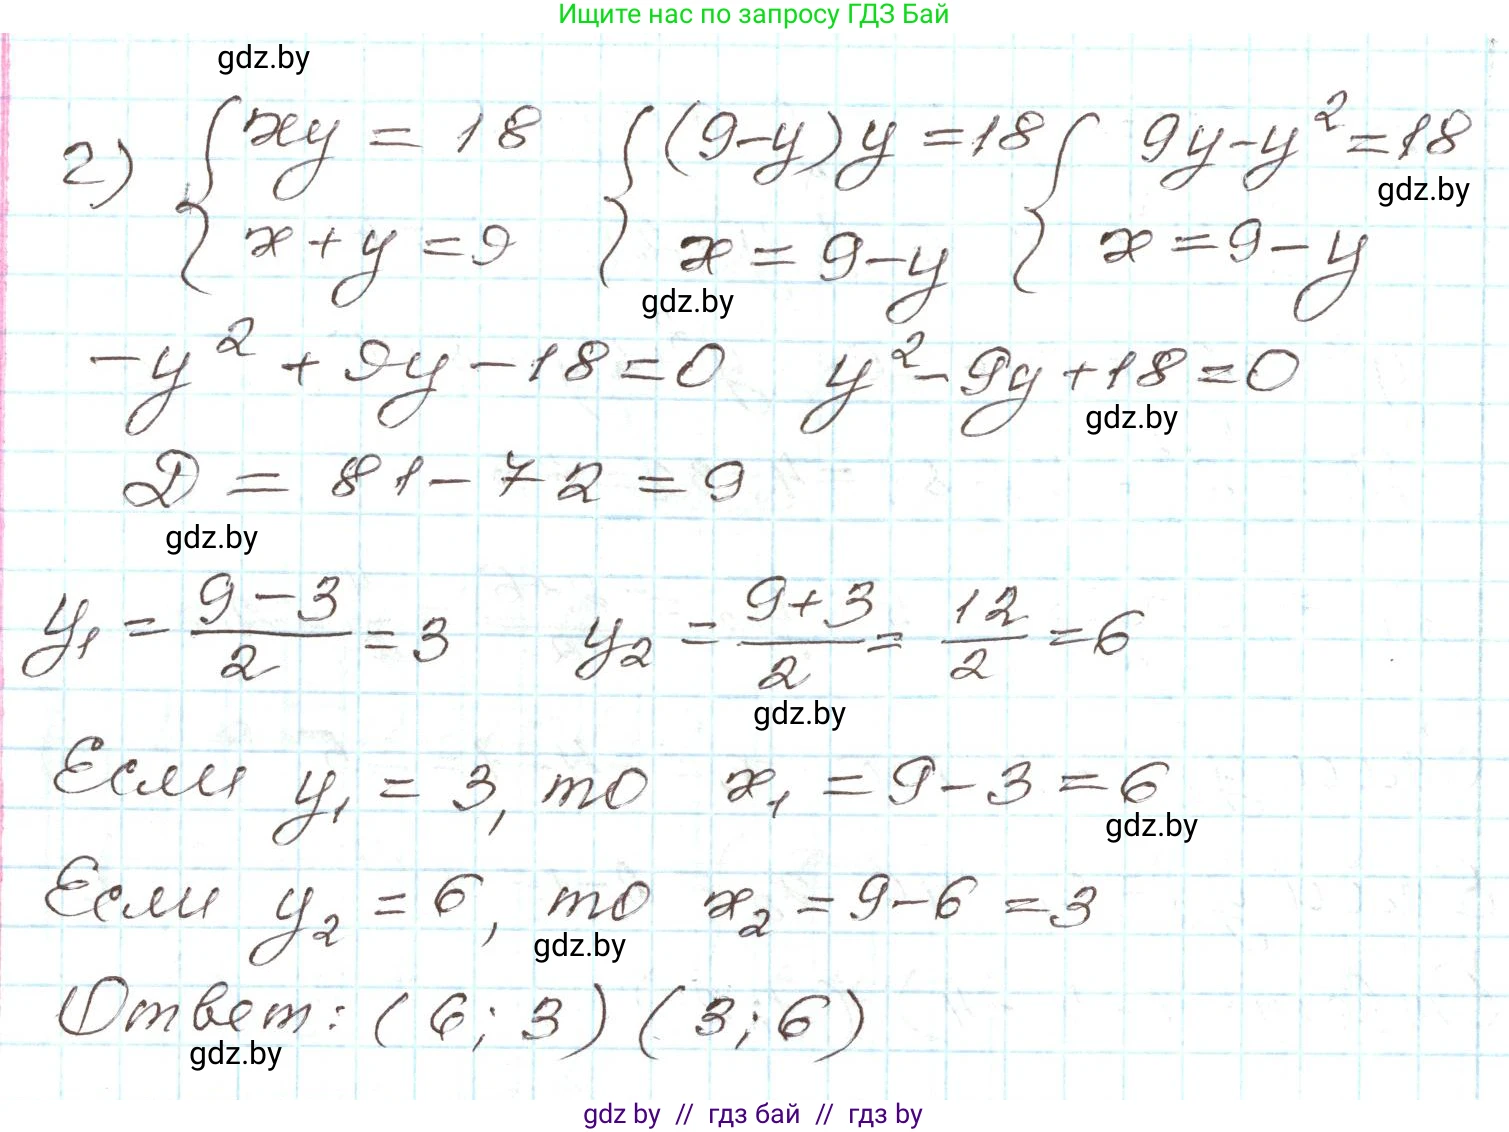 Ищите нас по запросу ГДЗ Бай
gdz.by
2) { xy = 18 { (9-y)y = 18 { 9y-y² = 18
gdz.by
x + y = 9 x = 9-y x = 9-y
gdz.by
-y² + 9y - 18 = 0 y² - 9y + 18 = 0
gdz.by
D = 81 - 72 = 9
gdz.by
y₁ = (9-3)/2 = 3 y₂ = (9+3)/2 = 12/2 = 6
gdz.by
Если y₁ = 3, то x₁ = 9 - 3 = 6
gdz.by
Если y₂ = 6, то x₂ = 9 - 6 = 3
gdz.by
Ответ: (6; 3) (3; 6)
gdz.by
gdz by // гдз бай // гдз by